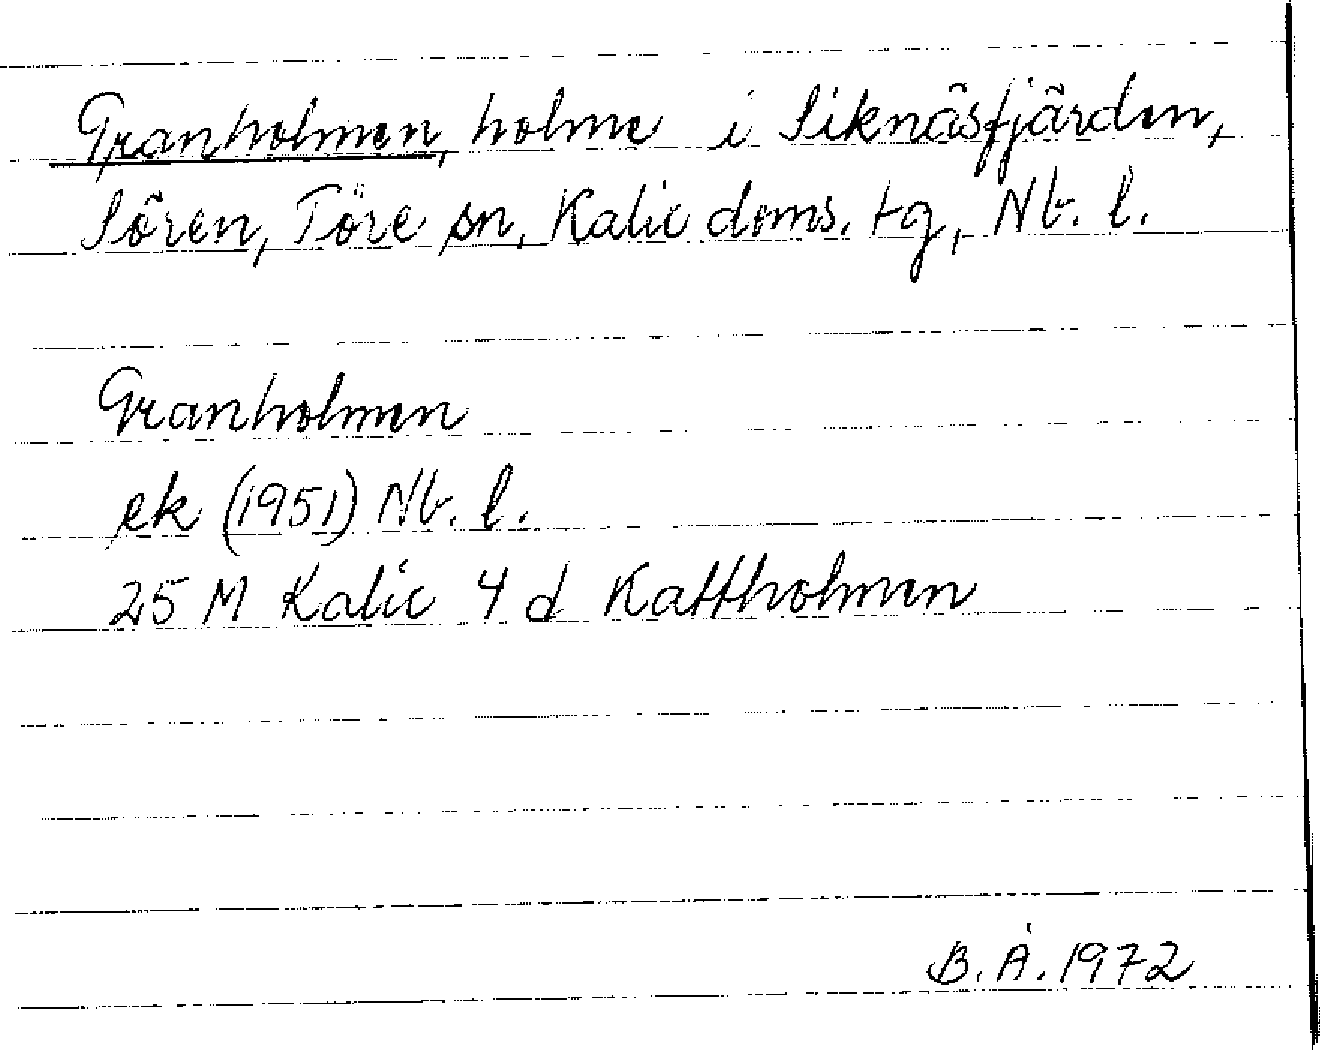 Granholmen, holme i Siknäsfjärden,
Sören, Töre sn, Kalix doms. tg, Nb. l.
Granholmen
ek (1951) Nb. l.
25 M Kalix 4 d Kattholmen
B. Å. 1972